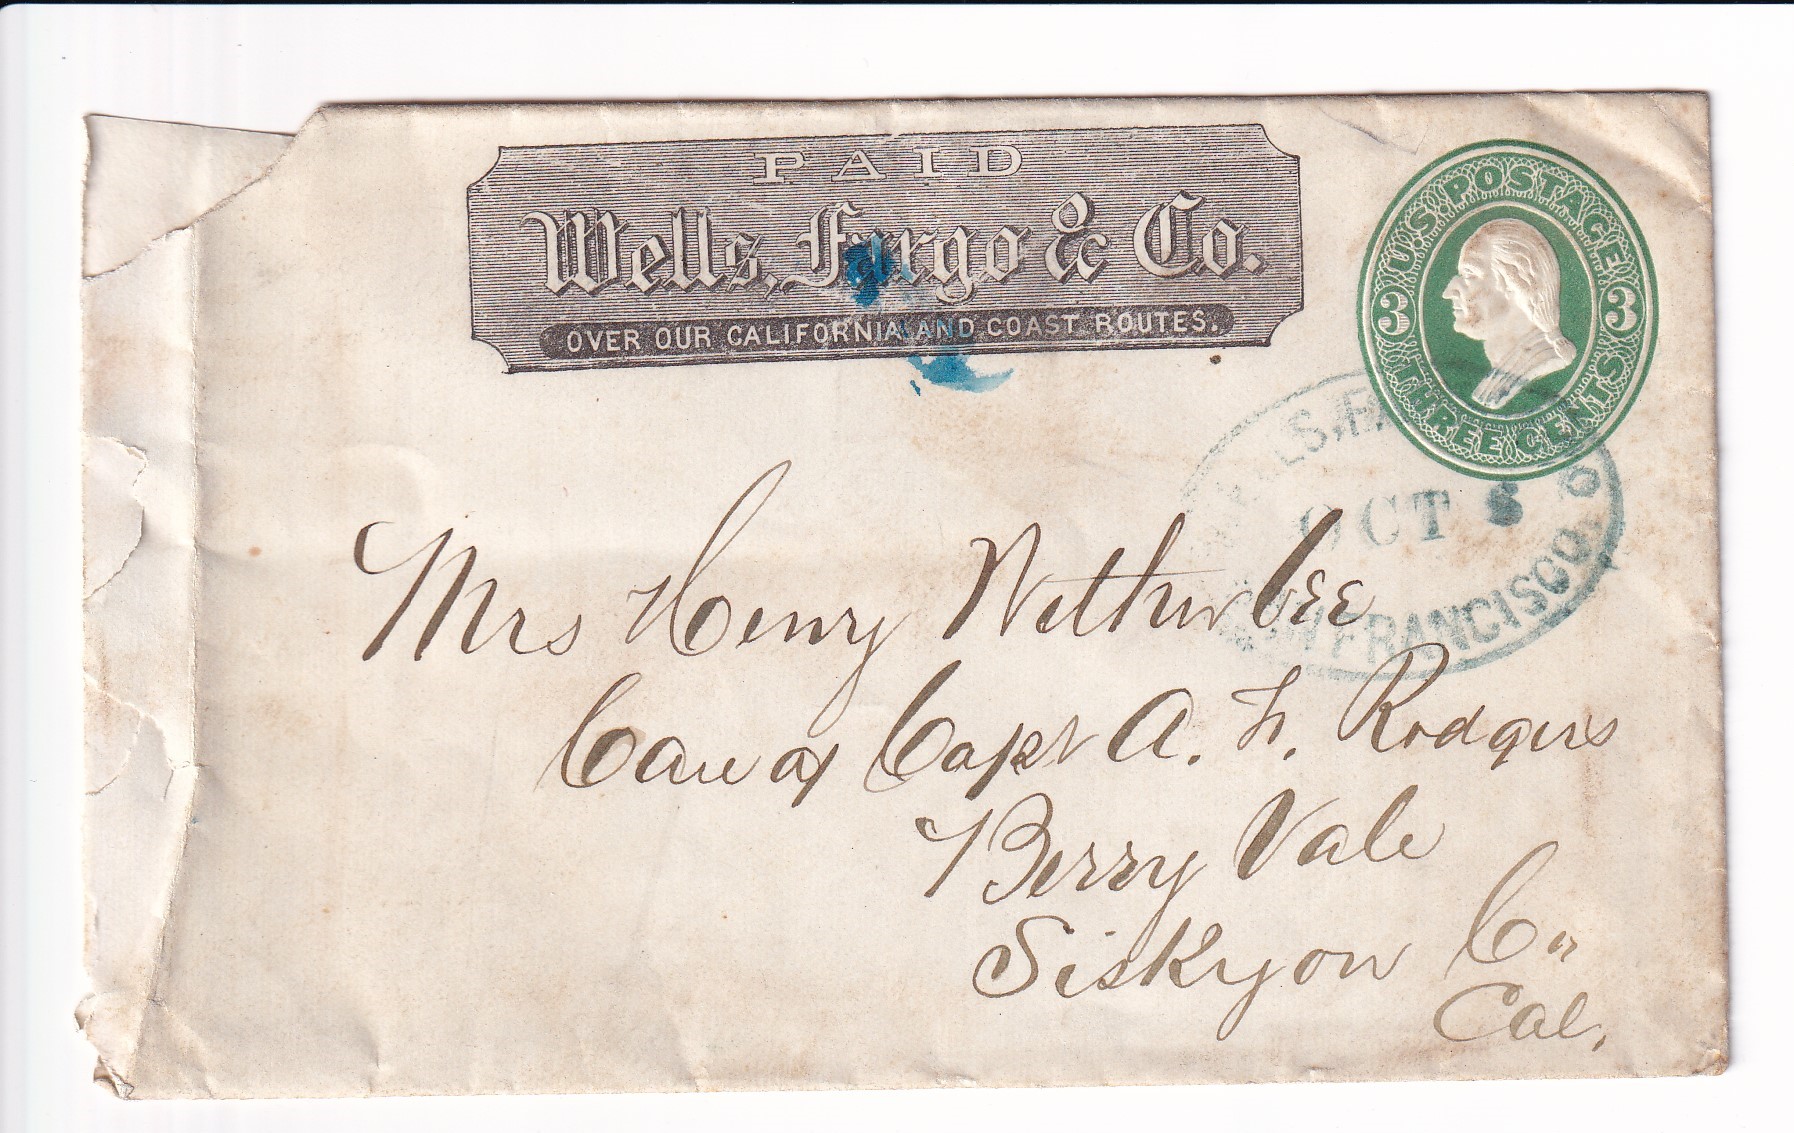 PAID
Wells, Fargo & Co.
OVER OUR CALIFORNIA AND COAST ROUTES.
U.S. POSTAGE
3 3
THREE CENTS
OCT
FRANCISCO
Mrs Henry Wetherbee
Care of Capt A. F. Rodgers
Berry Vale
Siskyou Co
Cal.